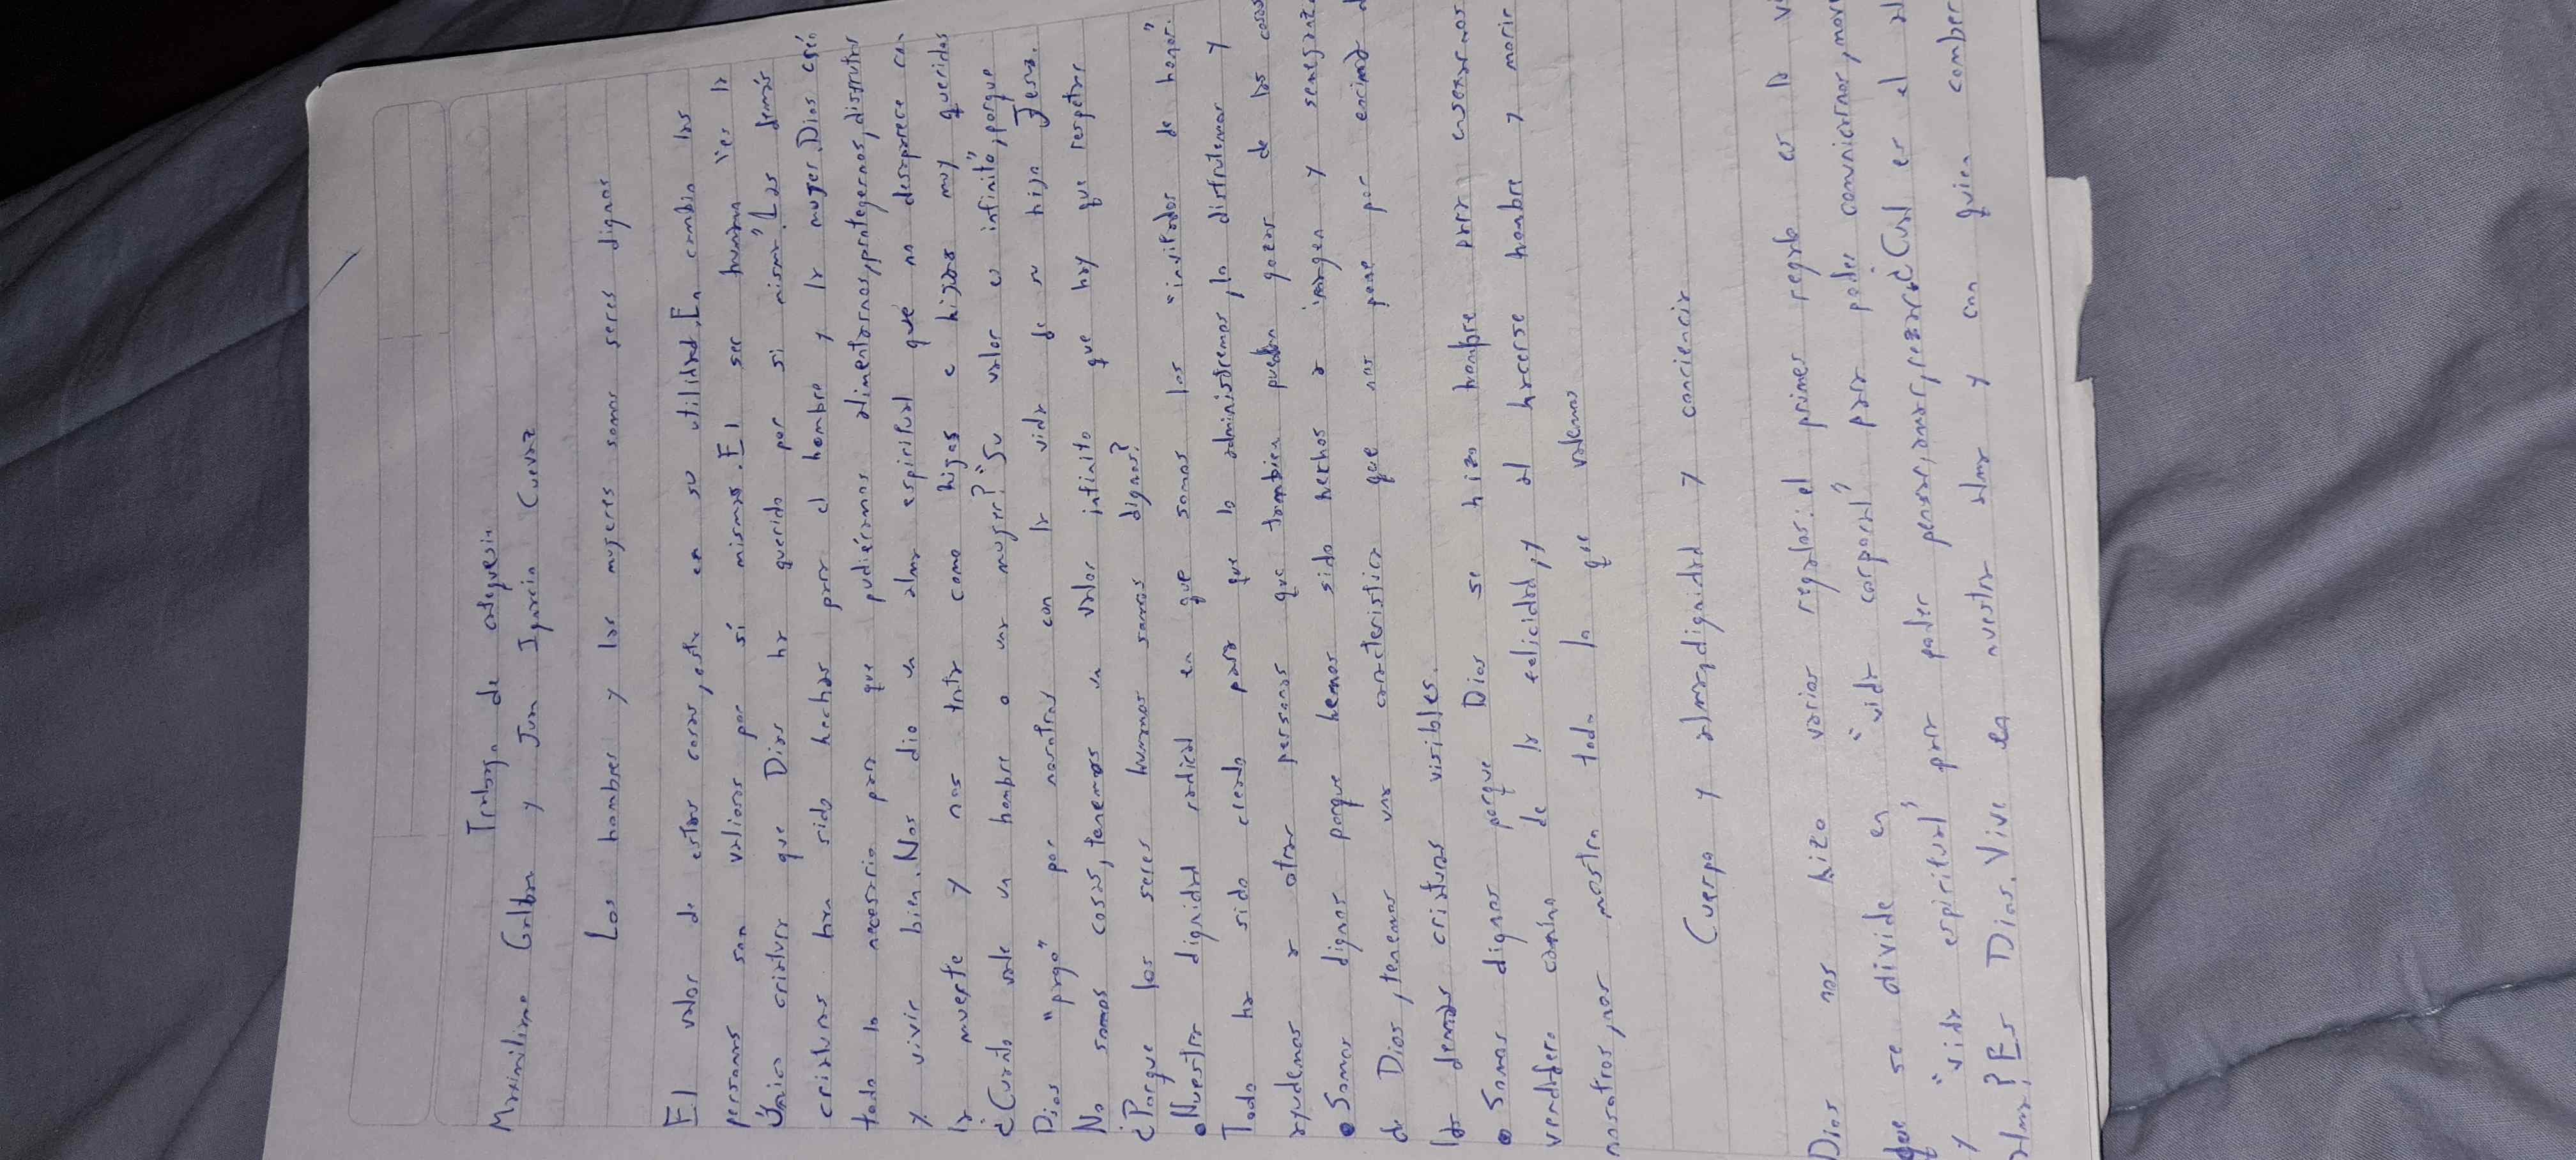 Trabajo de catequesis
Maximiliano Galban y Juan Ignacio Cuevaz
Los hombres y las mujeres somos seres dignos
El valor de estas cosas, esta en su utilidad. En cambio las
personas son valiosas por sí mismas. El ser humano "es la
Única criatura que Dios ha querido por si misma". Las demás
criaturas han sido hechas para el hombre y la mujer. Dios creó
todo lo necesario para que pudiéramos alimentarnos, protegernos, disfrutar
y vivir bien. Nos dio un alma espiritual que no desaparece con
la muerte y nos trata como hijas e hijos muy queridos
¿Cuánto vale un hombre o una mujer? "Su valor es infinito", porque
Dios "pagó" por nosotros con la vida de su hijo Jesus.
No somos cosas, tenemos un valor infinito que hay que respetar
¿Porque los seres humanos somos dignos?
• Nuestra dignidad radical en que somos los "invitados de honor".
Todo ha sido creado para que lo administremos, lo disfrutemos y
ayudemos a otras personas que tambien puedan gozar de las cosas
• Somos dignos porque hemos sido hechos a imagen y semejanza
de Dios, tenemos una caracteristica que nos pone por encima d
las demas criaturas visibles.
• Somos dignos porque Dios se hizo hombre para enseñarnos
verdadero camino de la felicidad, y al hacerse hombre y morir
nosotros, nos mostro todo lo que valemos
Cuerpo y alma, dignidad y conciencia
Dios nos hizo varios regalos: el primer regalo es la v
que se divide en "vida corporal" para poder comunicarnos, move
y "vida espiritual" para poder pensar, amar, rezar. ¿Cual es el al
alma? Es Dios. Vive en nuestra alma y con quien comber